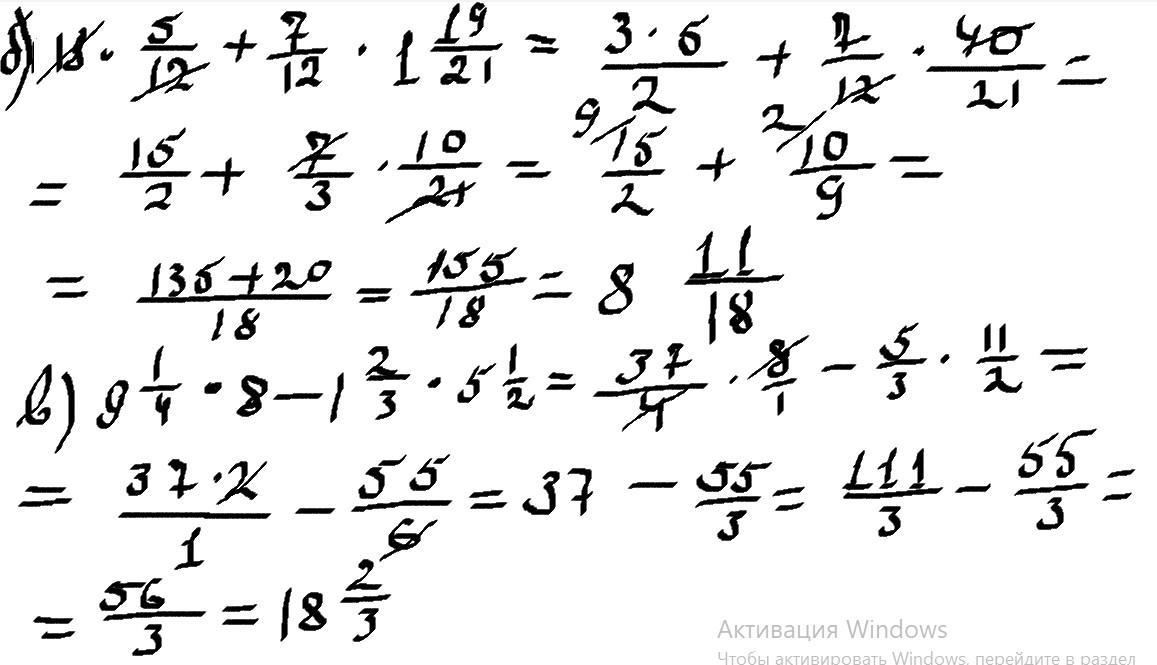 б) 18 · 5/12 + 7/12 · 1 19/21 = 3·5/2 + 7/12 · 40/21 =
= 15/2 + 7/3 · 10/21 = 9 15/2 + 2 10/9 =
= 135+20/18 = 155/18 = 8 11/18
в) 9 1/4 · 8 - 1 2/3 · 5 1/2 = 37/4 · 8/1 - 5/3 · 11/2 =
= 37·2/1 - 55/6 = 37 - 55/3 = 111/3 - 55/3 =
= 56/3 = 18 2/3
Активация Windows
Чтобы активировать Windows, перейдите в раздел